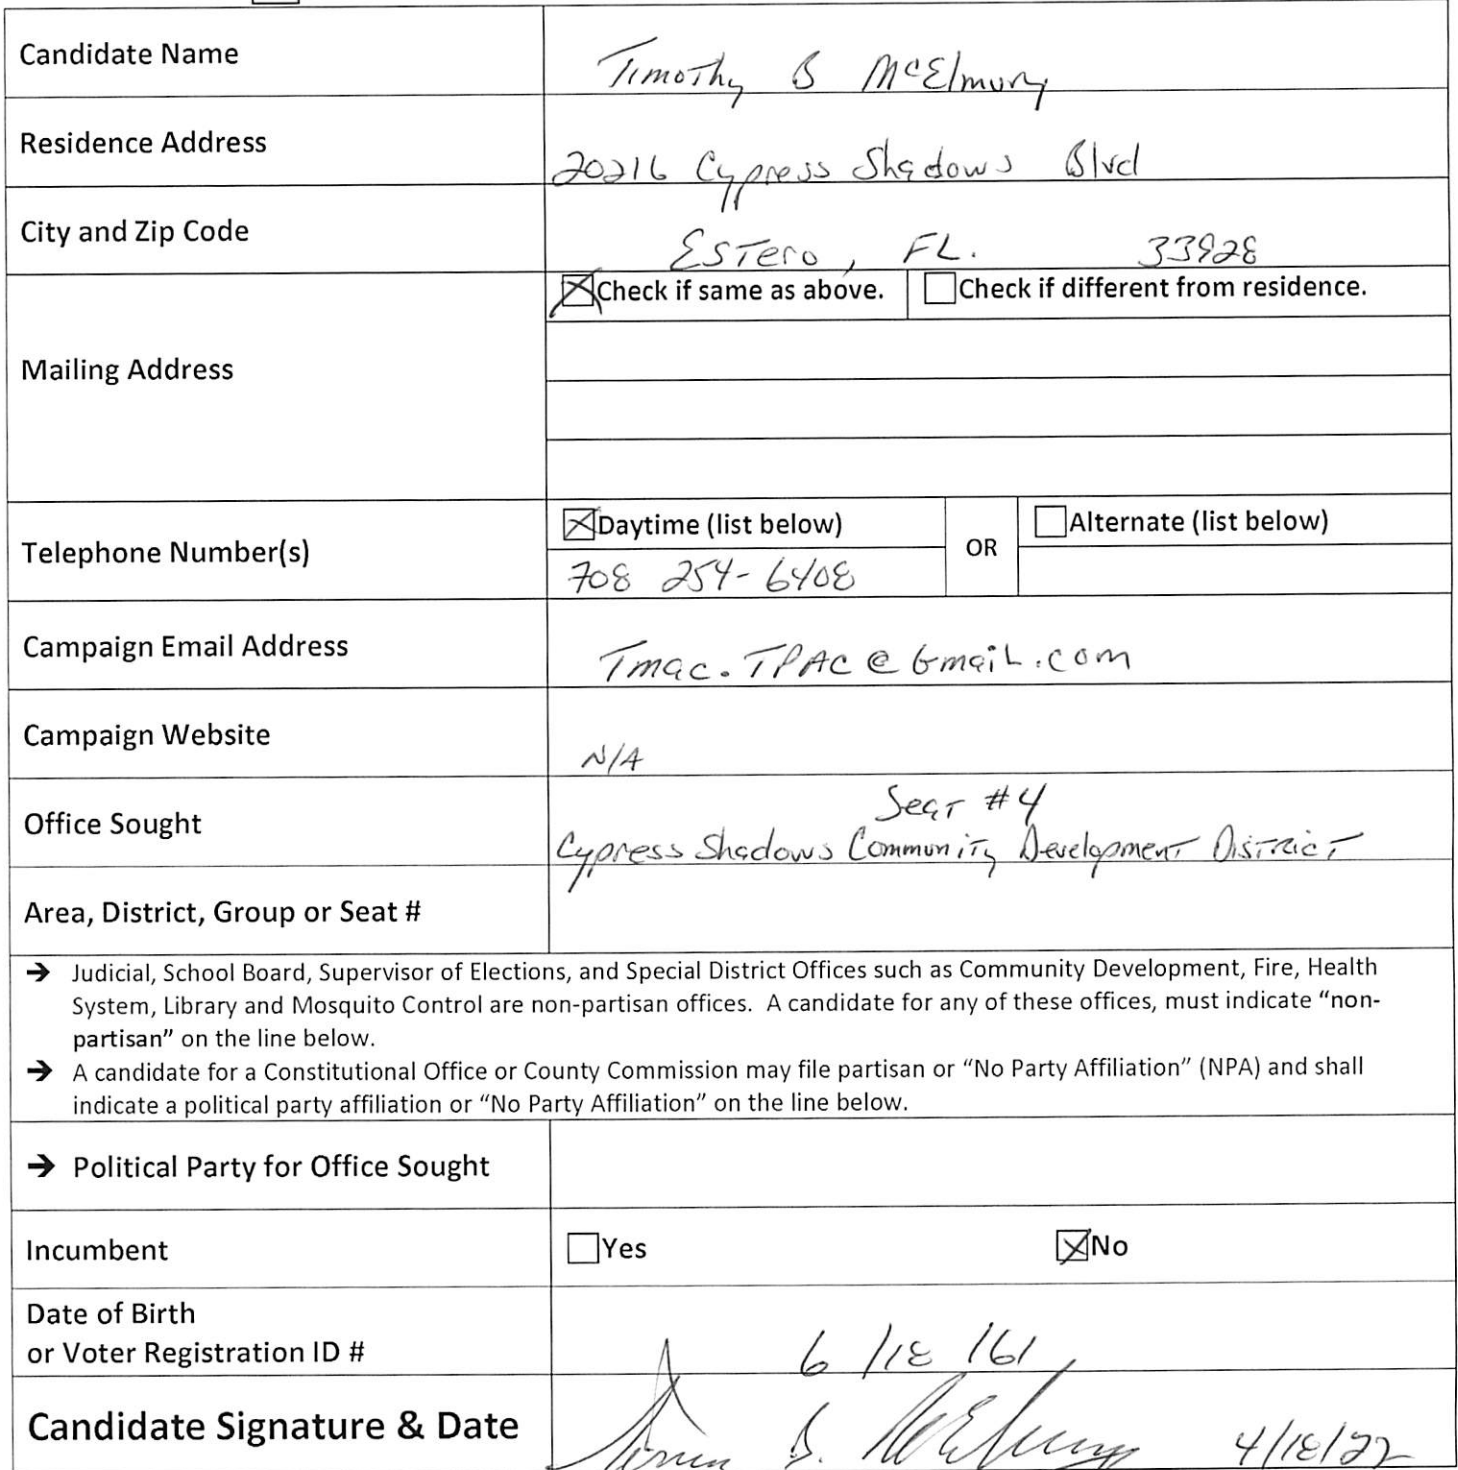 Candidate Name Timothy B McElmury
Residence Address 20216 Cypress Shadows Blvd
City and Zip Code Estero, FL. 33928
Mailing Address
Check if same as above. Check if different from residence.
Telephone Number(s)
Daytime (list below) OR Alternate (list below)
708 254-6408
Campaign Email Address Tmac.TPAC@Gmail.com
Campaign Website N/A
Seat #4
Office Sought Cypress Shadows Community Development District
Area, District, Group or Seat #
→ Judicial, School Board, Supervisor of Elections, and Special District Offices such as Community Development, Fire, Health
System, Library and Mosquito Control are non-partisan offices. A candidate for any of these offices, must indicate "non-
partisan" on the line below.
→ A candidate for a Constitutional Office or County Commission may file partisan or "No Party Affiliation" (NPA) and shall
indicate a political party affiliation or "No Party Affiliation" on the line below.
→ Political Party for Office Sought
Incumbent Yes No
Date of Birth
or Voter Registration ID # 6/18/61
Candidate Signature & Date 4/18/22